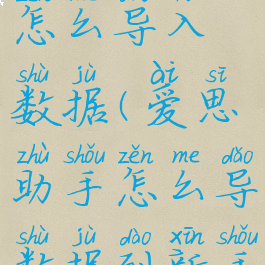 怎么导入
shù jù ài sī
数据(爱思
zhù shǒu zěn me dǎo
助手怎么导
shù jù dào xīn shǒu
数据到新手